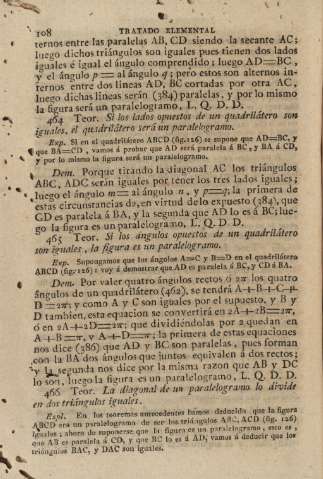 108 TRATADO ELEMENTAL
ternos entre las paralelas AB, CD siendo la secante AC;
luego dichos triángulos son iguales pues tienen dos lados
iguales é igual el ángulo comprendido; luego AD=BC,
y el ángulo p= al ángulo q; pero estos son alternos in-
ternos entre dos lineas AD, BC cortadas por otra AC,
luego dichas lineas serán (384) paralelas, y por lo mismo
la figura será un paralelogramo, L. Q. D. D.
464 Teor. Si los lados opuestos de un quadrilátero son
iguales, el quadrilátero será un paralelogramo.
Exp. Si en el quadrilátero ABCD (fig.126) se supone que AD=BC, y
que BA=CD, vamos á probar que AD será paralela á BC, y BA á CD,
y por lo mismo la figura será un paralelogramo.
Dem. Porque tirando la diagonal AC los triángulos
ABC, ADC serán iguales por tener los tres lados iguales;
luego el ángulo m= al ángulo n, y p=q; la primera de
estas circunstancias da, en virtud de lo expuesto (384), que
CD es paralela á BA, y la segunda que AD lo es á BC; lue-
go la figura es un paralelogramo, L. Q. D. D.
465 Teor. Si los ángulos opuestos de un quadrilátero
son iguales, la figura es un paralelogramo.
Exp. Supongamos que los ángulos A=C y B=D en el quadrilátero
ABCD (fig.126): voy á demostrar que AD es paralela á BC, y CD á BA.
Dem. Por valer quatro ángulos rectos ó 2π los quatro
ángulos de un quadrilátero (462), se tendrá A+B+C+
D=2π; y como A y C son iguales por el supuesto, y B y
D tambien, esta equacion se convertirá en 2A+2B=2π,
ó en 2A+2D=2π; que dividiéndolas por 2 quedan en
A+B=π, y A+D=π; la primera de estas equaciones
nos dice (386) que AD y BC son paralelas, pues forman
con la BA dos ángulos que juntos equivalen á dos rectos;
y la segunda nos dice por la misma razon que AB y DC
lo son, luego la figura es un paralelogramo, L. Q. D. D.
466 Teor. La diagonal de un paralelogramo lo divide
en dos triángulos iguales.
Expl. En los teoremas antecedentes hemos deducido que la figura
ABCD era un paralelogramo de ser los triángulos ABC, ACD (fig. 126)
iguales; ahora de suponerse que la figura es un paralelogramo, esto es,
que AB es paralela á CD, y que BC lo es á AD, vamos á deducir que los
triángulos BAC, y DAC son iguales.